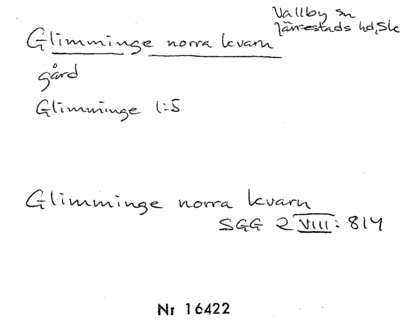 Vallby sn
Järrestads hd, Sk
Glimminge norra kvarn
gård
Glimminge 1:5
Glimminge norra kvarn
SGG 2 VIII: 814
Nr 16422